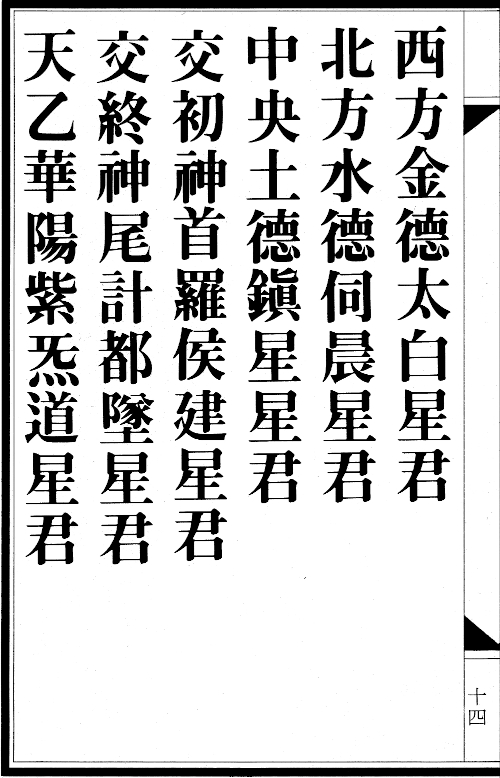 西方金德太白星君
北方水德伺晨星君
中央土德鎮星星君
交初神首羅侯建星君
交終神尾計都墜星君
天乙華陽紫炁道星君
十四